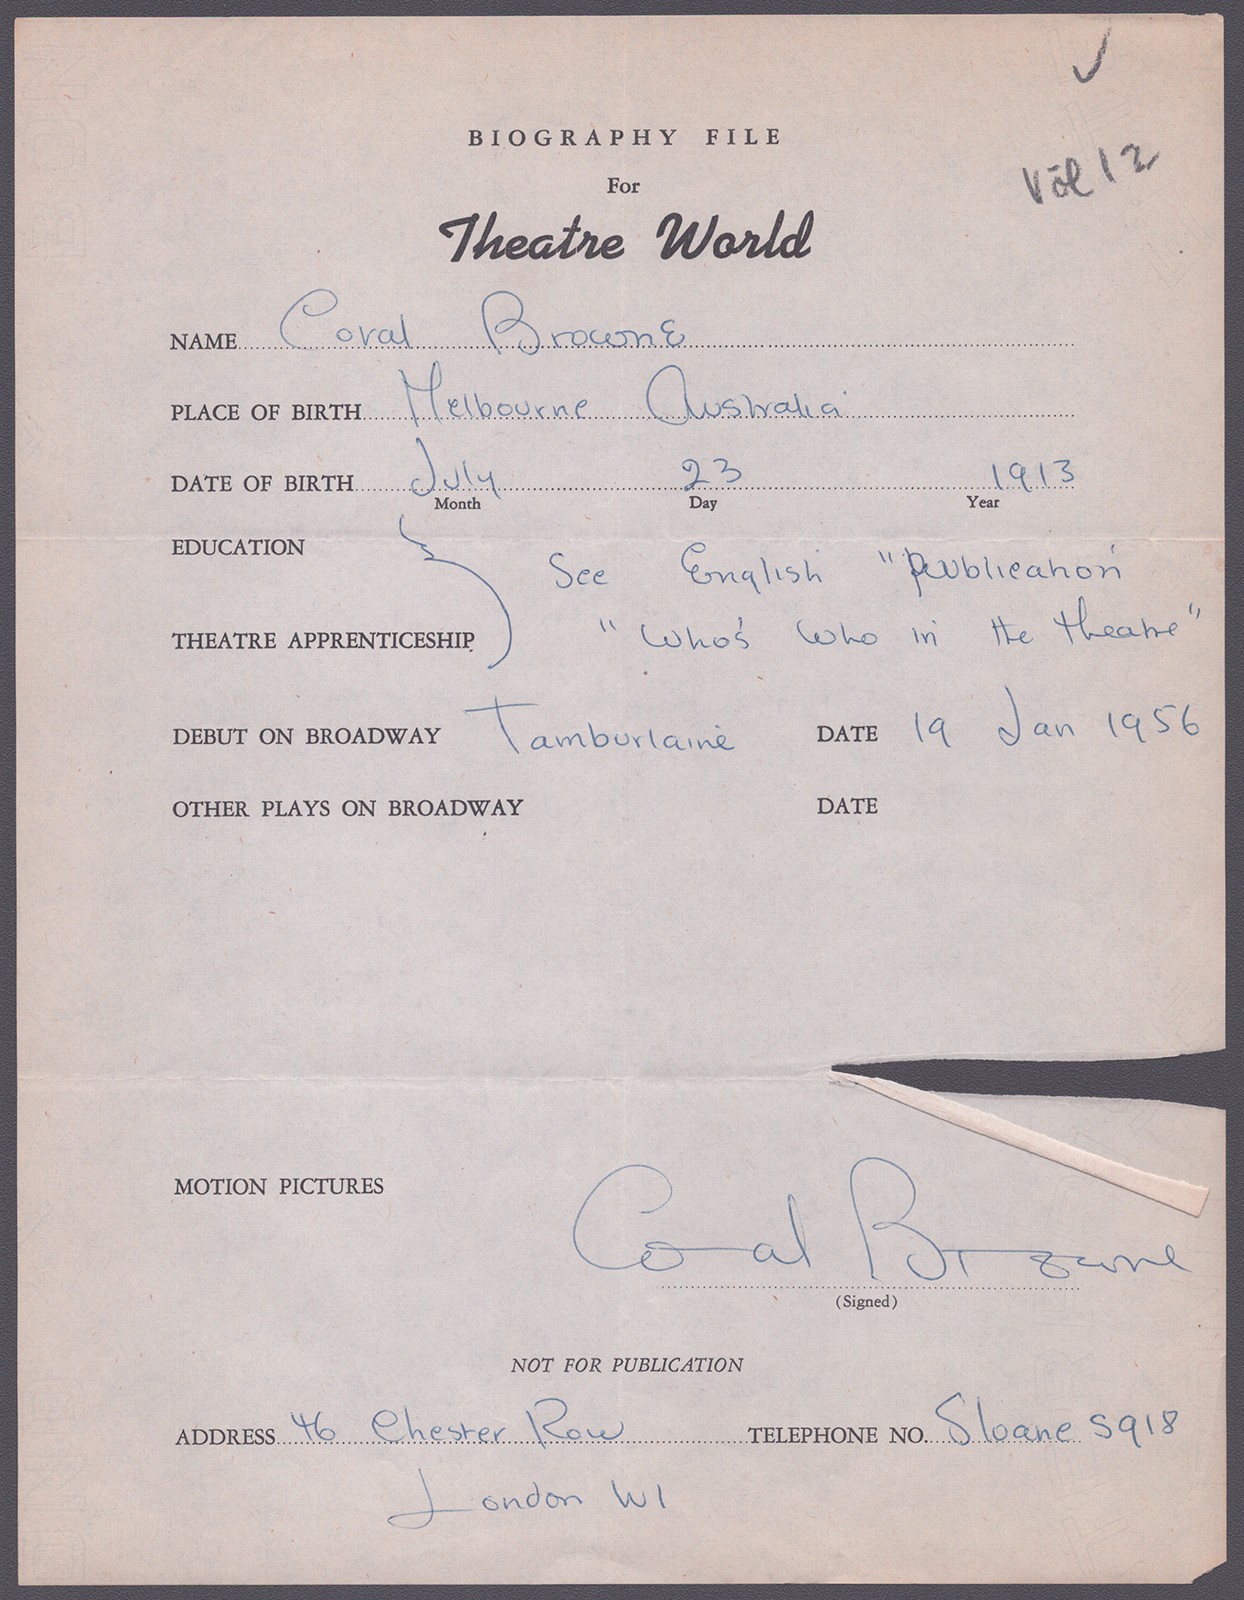 BIOGRAPHY FILE
Vol 12
For
Theatre World
NAME Coral Browne
PLACE OF BIRTH Melbourne Australia
DATE OF BIRTH July 23 1913
Month Day Year
EDUCATION
See English "Publication
THEATRE APPRENTICESHIP "Who's Who in the theatre"
DEBUT ON BROADWAY Tamburlaine DATE 19 Jan 1956
OTHER PLAYS ON BROADWAY DATE
MOTION PICTURES
Coral Browne
(Signed)
NOT FOR PUBLICATION
ADDRESS 46 Chester Row TELEPHONE NO. Sloane 5918
London W1